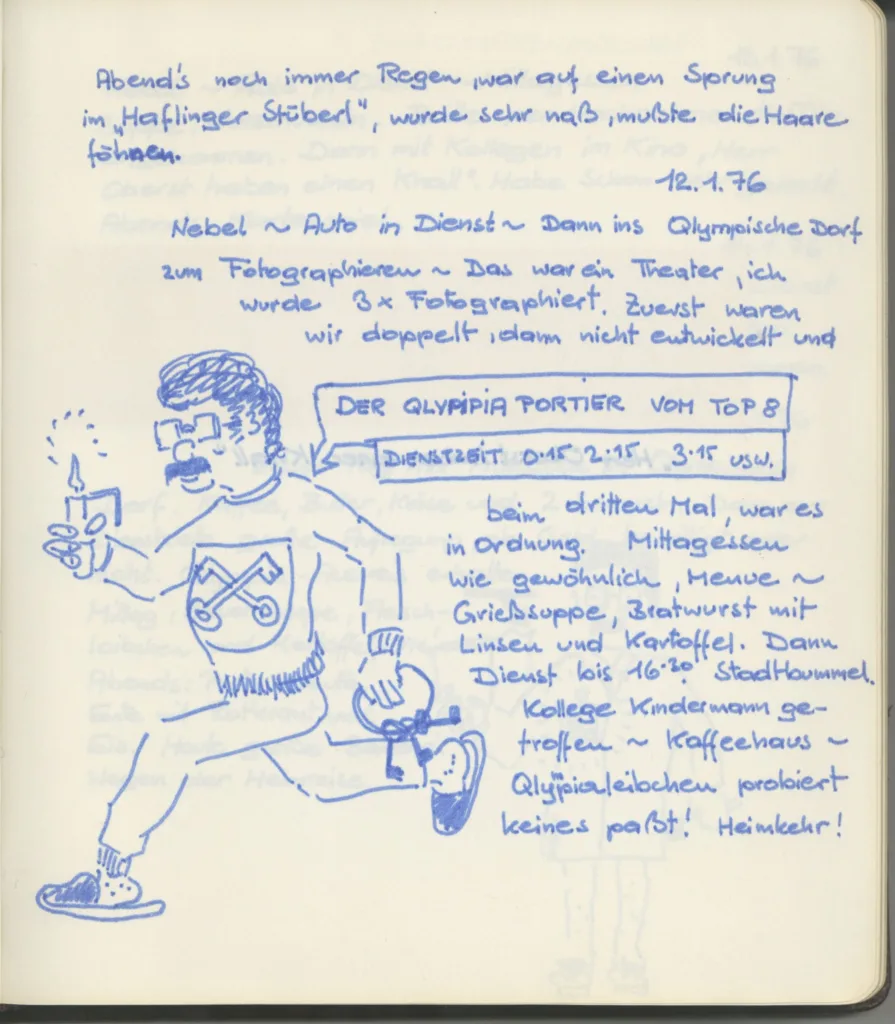 Abend's noch immer Regen, war auf einen Sprung
im „Haflinger Stüberl", wurde sehr naß, mußte die Haare
föhnen.
12.1.76
Nebel ~ Auto in Dienst ~ Dann ins Olympische Dorf
zum Fotographieren ~ Das war ein Theater, ich
wurde 3x Fotographiert. Zuerst waren
wir doppelt, dann nicht entwickelt und
DER OLYPIPIA PORTIER VOM TOP 8
DIENSTZEIT 0.15 2.15 3.15 usw.
beim dritten Mal, war es
in Ordnung. Mittagessen
wie gewöhnlich, Menue ~
Grießsuppe, Bratwurst mit
Linsen und Kartoffel. Dann
Dienst bis 16.30 Stadtbummel.
Kollege Kindermann ge-
troffen ~ Kaffeehaus ~
Olypialeibchen probiert
keines paßt! Heimkehr!